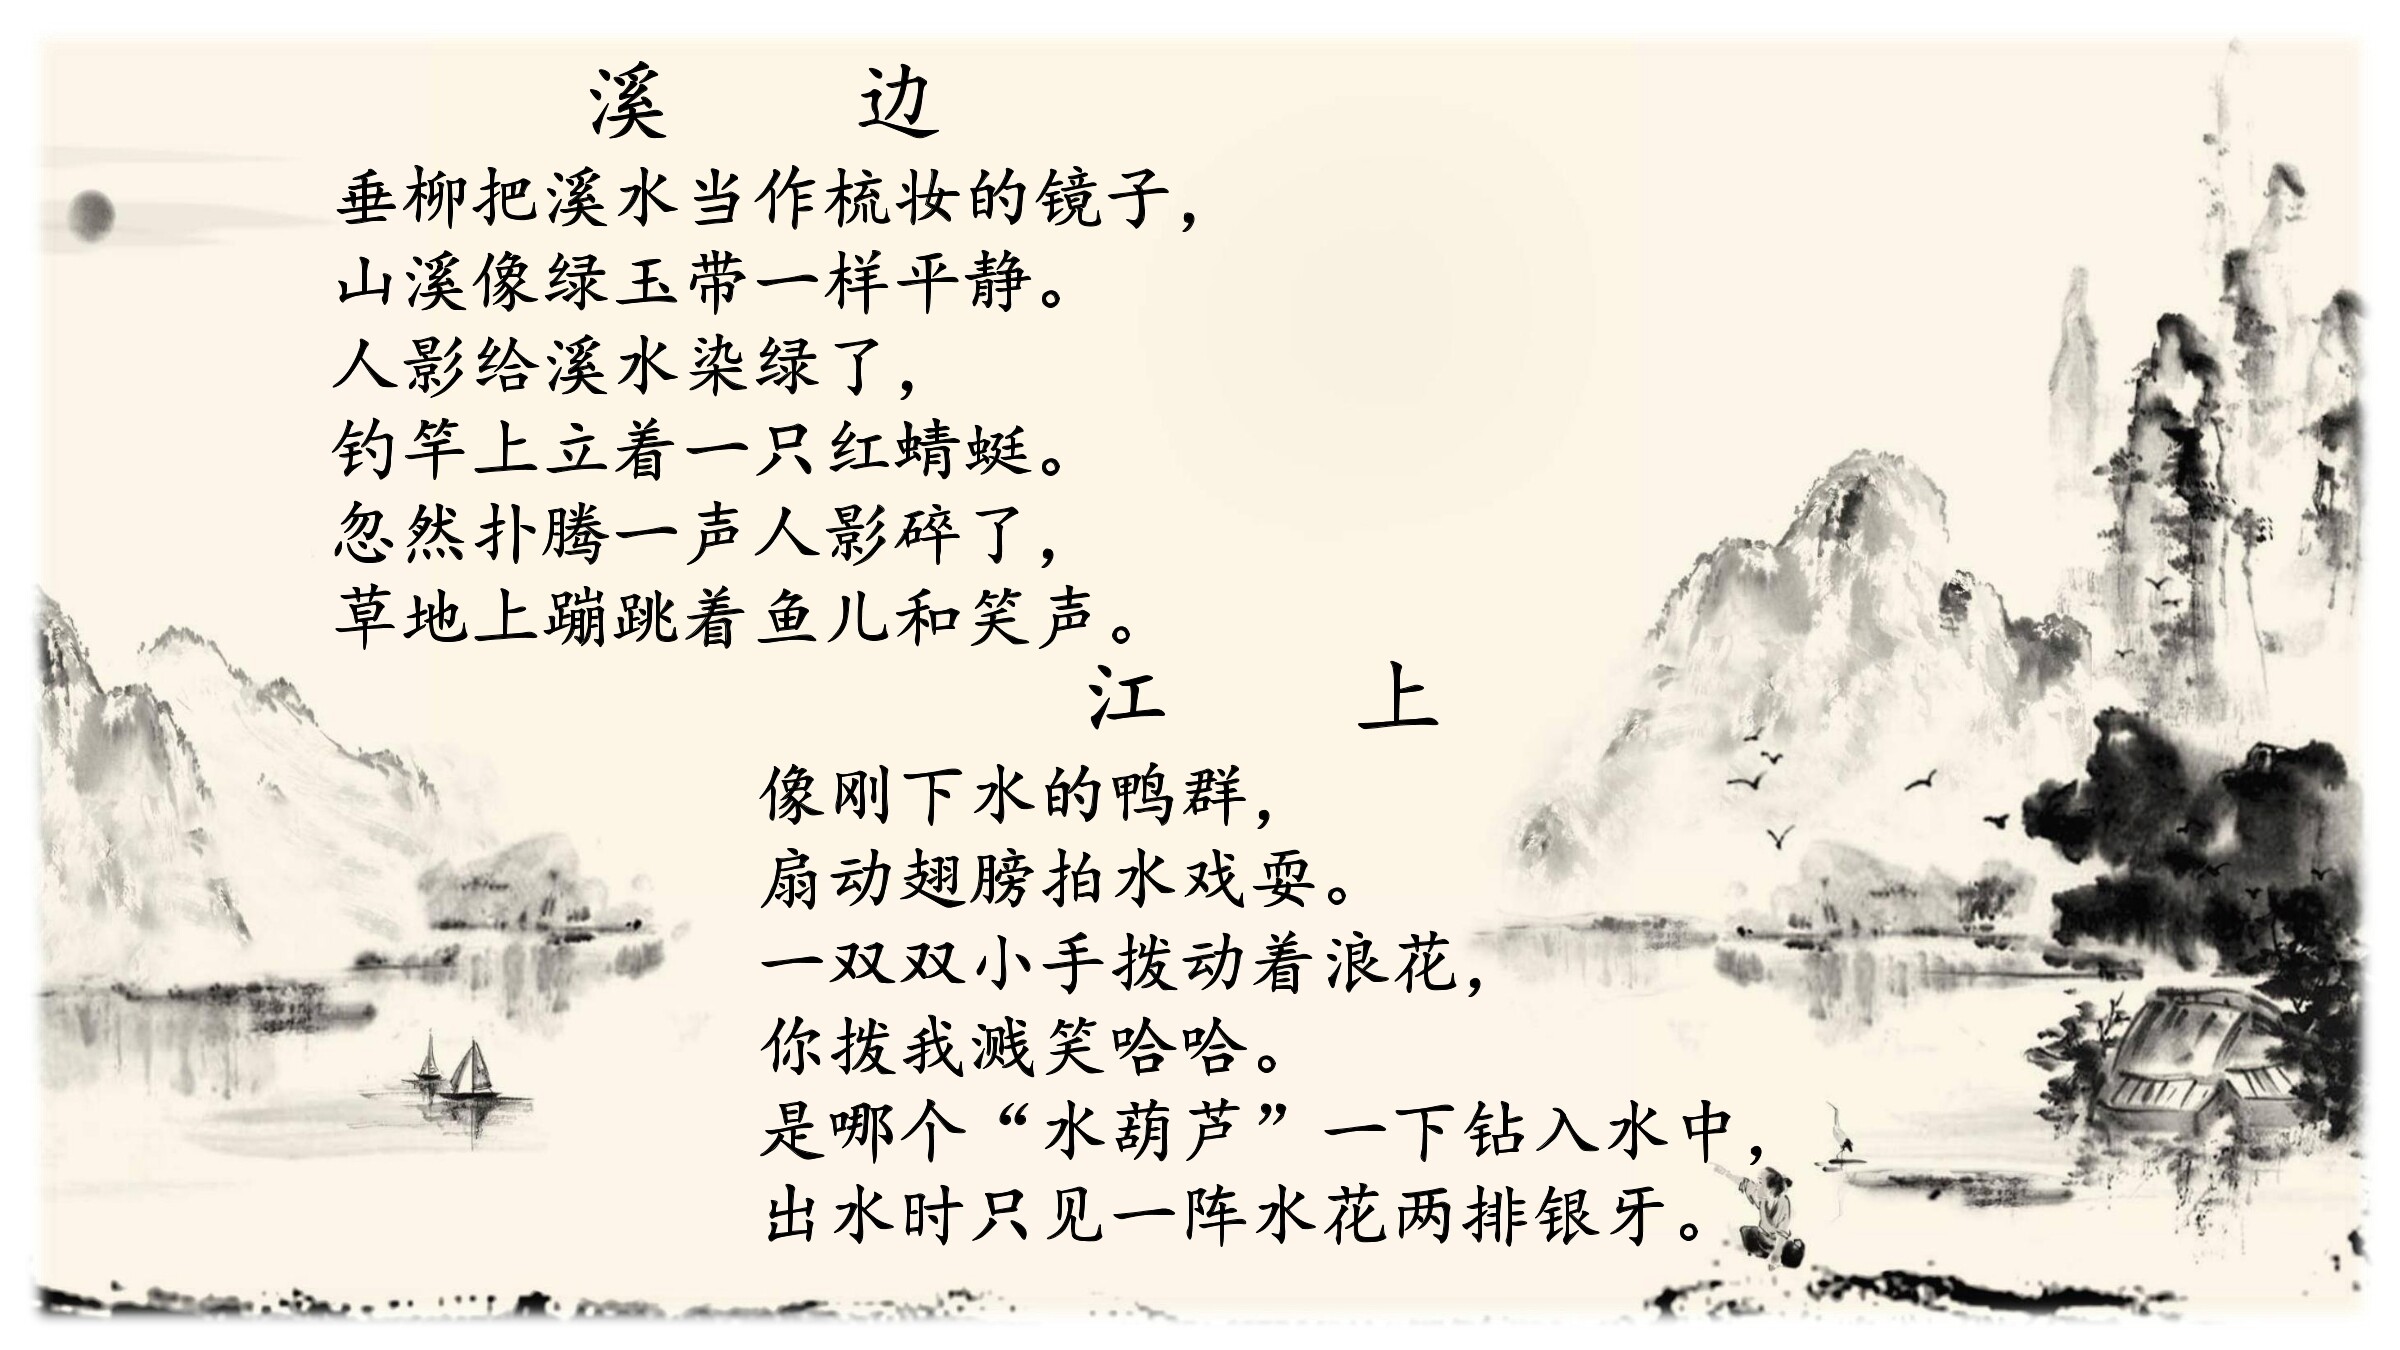 溪 边
垂柳把溪水当作梳妆的镜子，
山溪像绿玉带一样平静。
人影给溪水染绿了，
钓竿上立着一只红蜻蜓。
忽然扑腾一声人影碎了，
草地上蹦跳着鱼儿和笑声。
江 上
像刚下水的鸭群，
扇动翅膀拍水戏耍。
一双双小手拨动着浪花，
你拨我溅笑哈哈。
是哪个“水葫芦”一下钻入水中，
出水时只见一阵水花两排银牙。